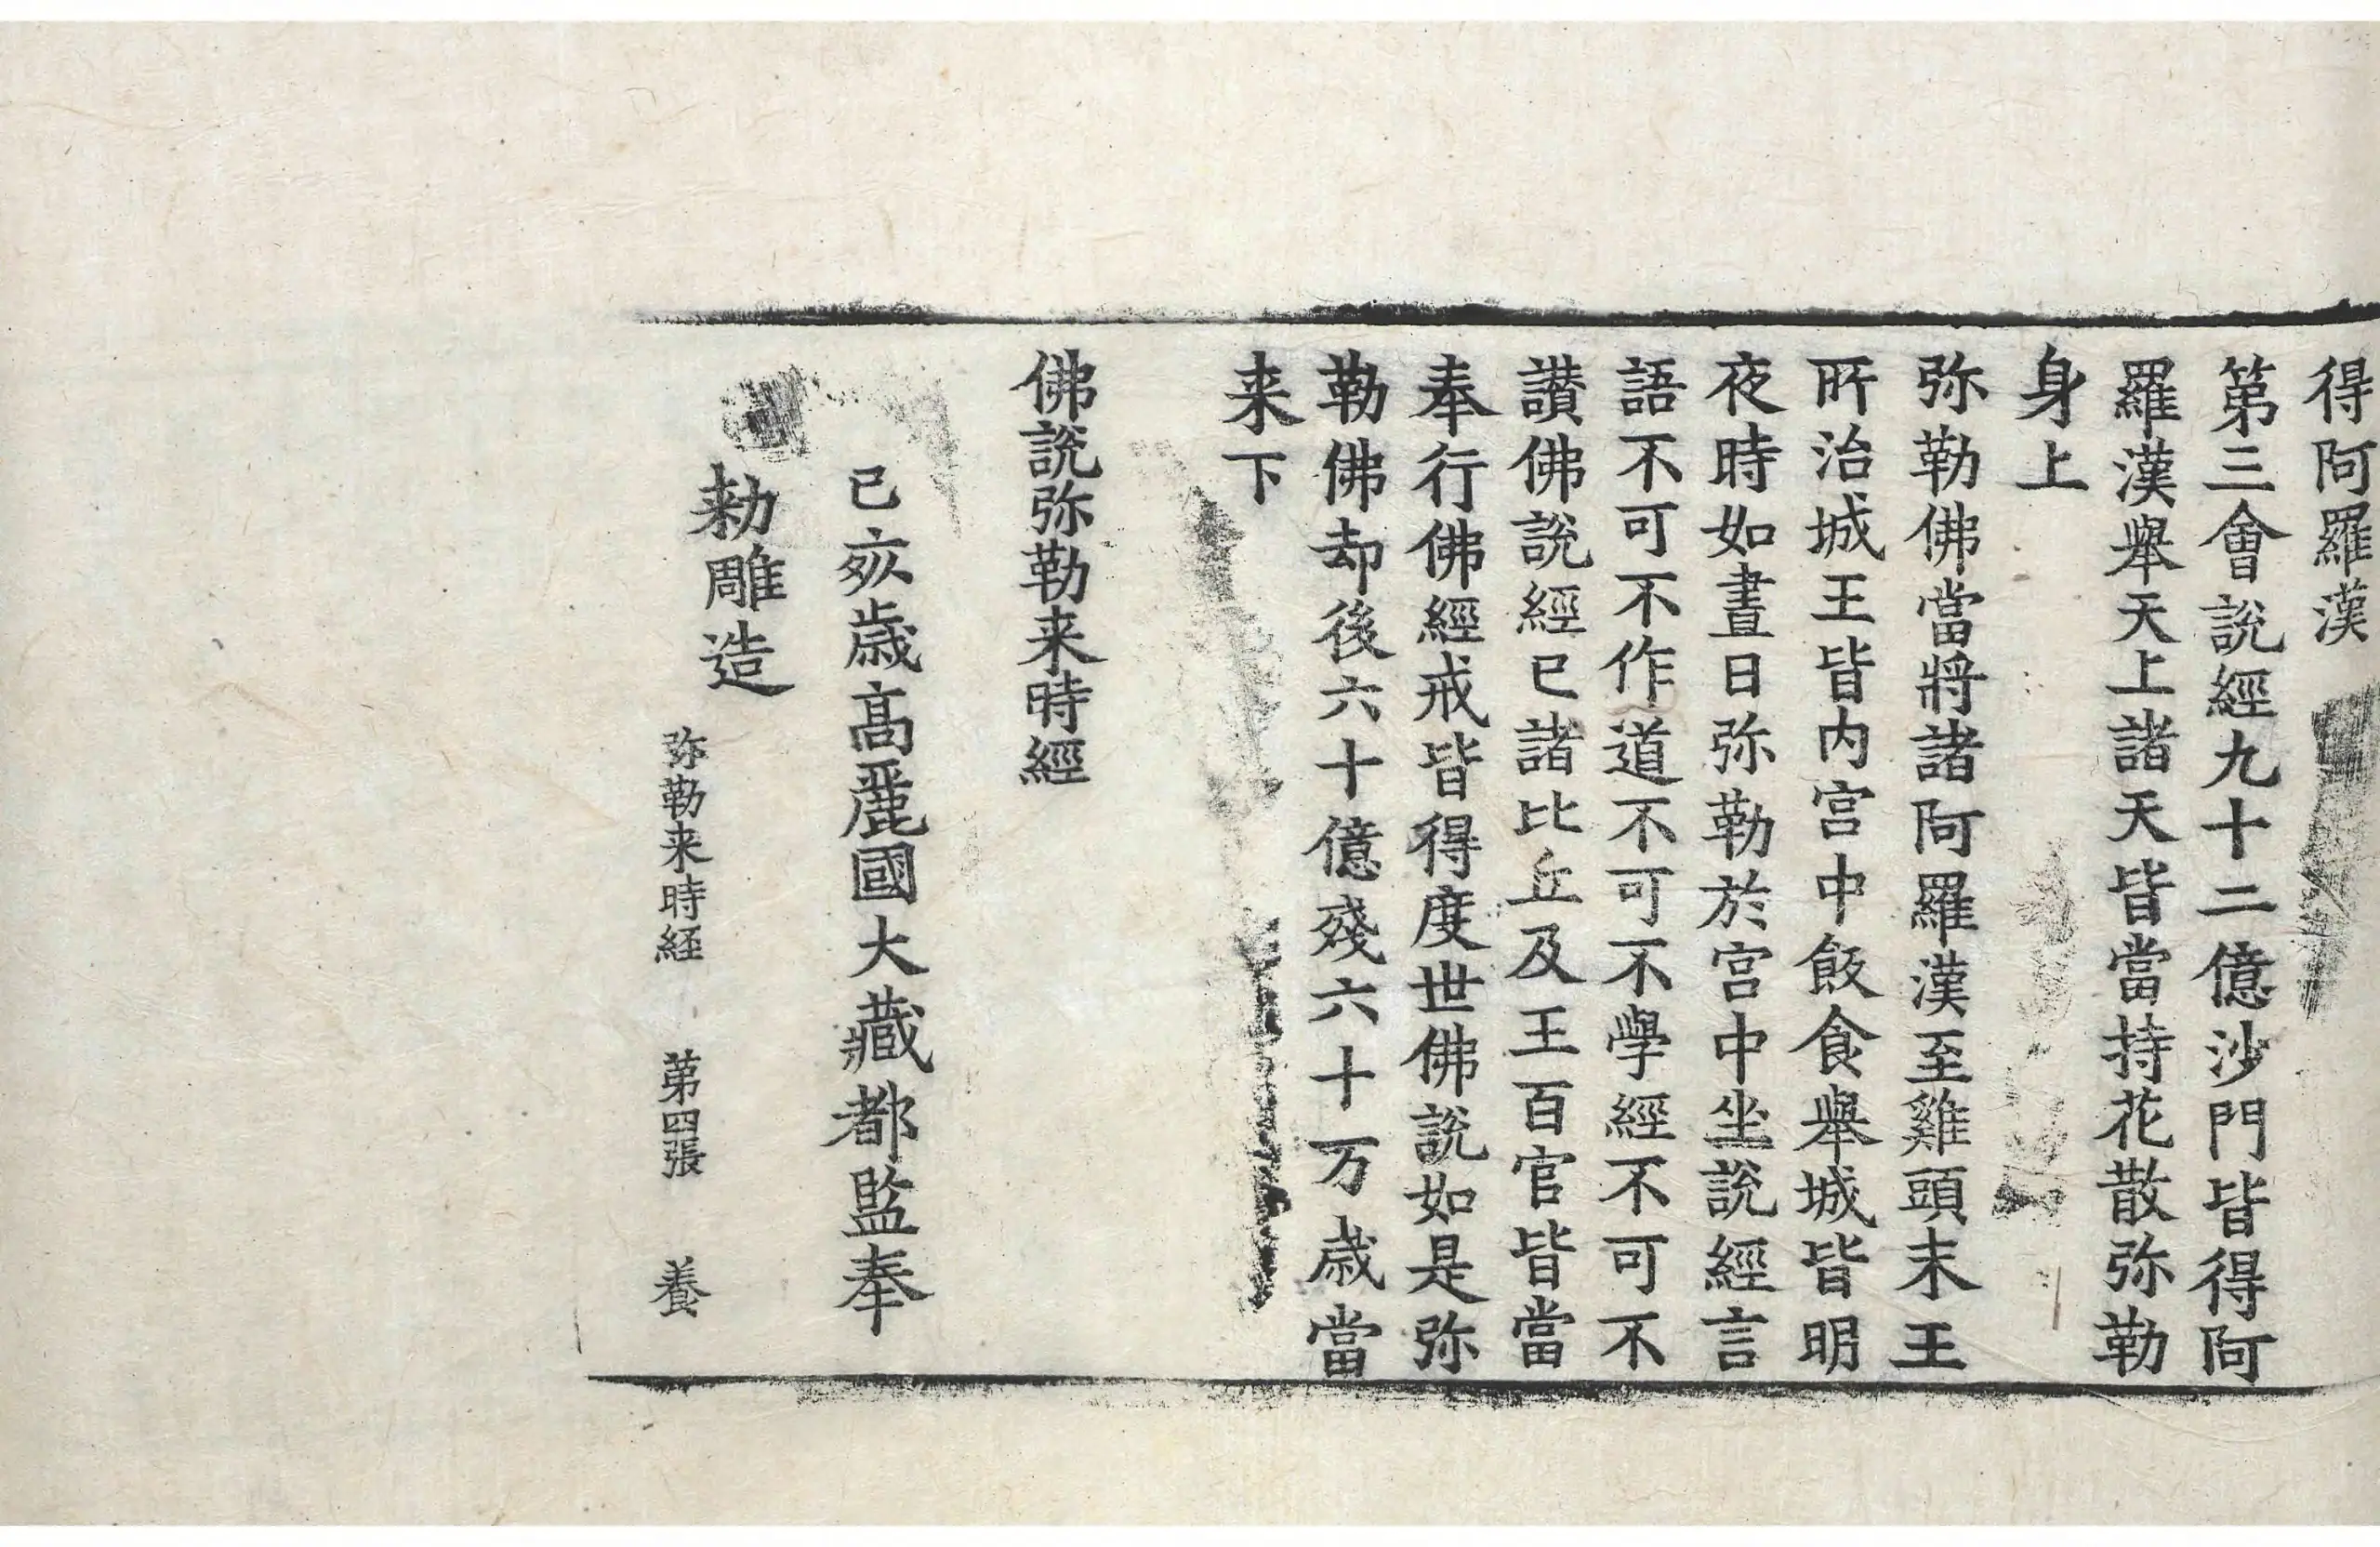 得阿羅漢
第三會說經九十二億沙門皆得阿
羅漢舉天上諸天皆當持花散弥勒
身上
弥勒佛當將諸阿羅漢至雞頭末王
所治城王皆内宫中飯食舉城皆明
夜時如晝日弥勒於宫中坐說經言
語不可不作道不可不學經不可不
讃佛說經已諸比丘及王百官皆當
奉行佛經戒皆得度世佛說如是弥
勒佛却後六十億殘六十万歲當
来下
佛說弥勒来時經
己亥歲高麗國大藏都監奉
勑雕造
弥勒来時経 第四張 養